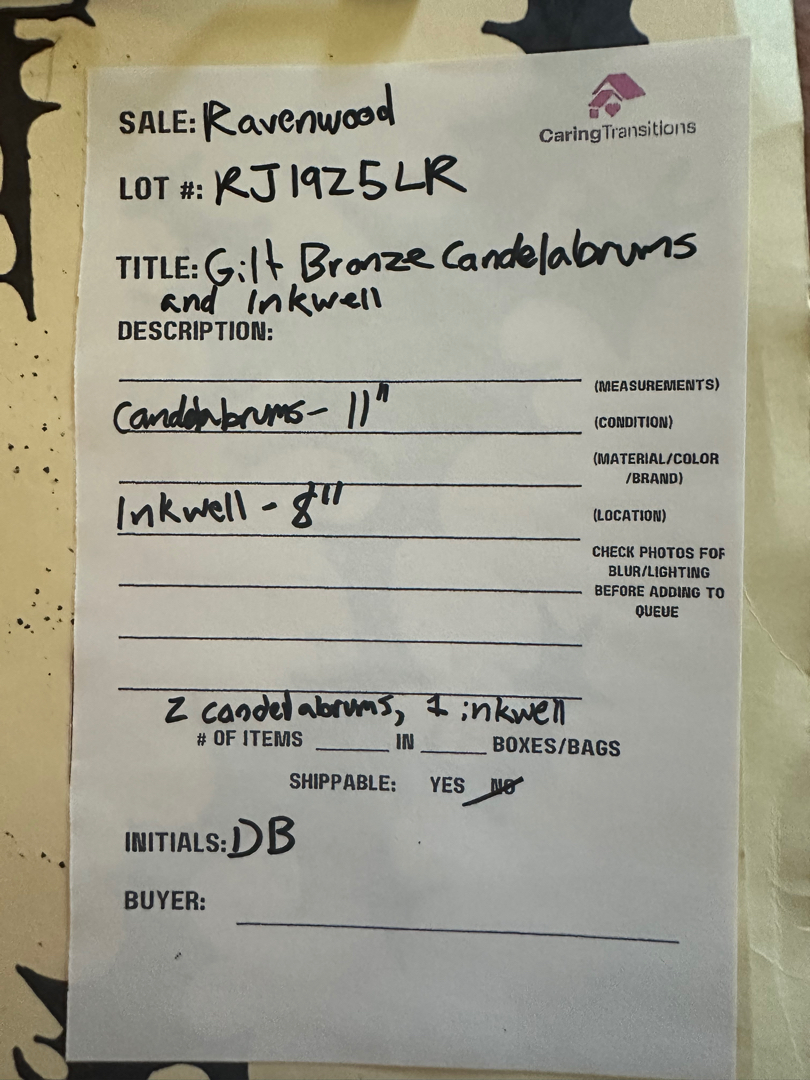 SALE: Ravenwood
CaringTransitions
LOT #: RJ1925LR
TITLE: Gilt Bronze Candelabrums
and Inkwell
DESCRIPTION:
(MEASUREMENTS)
Candelabrums - 11"
(CONDITION)
(MATERIAL/COLOR
/BRAND)
Inkwell - 8"
(LOCATION)
CHECK PHOTOS FOR
BLUR/LIGHTING
BEFORE ADDING TO
QUEUE
2 candelabrums, 1 inkwell
# OF ITEMS ______ IN ______ BOXES/BAGS
SHIPPABLE: YES NO
INITIALS: DB
BUYER: